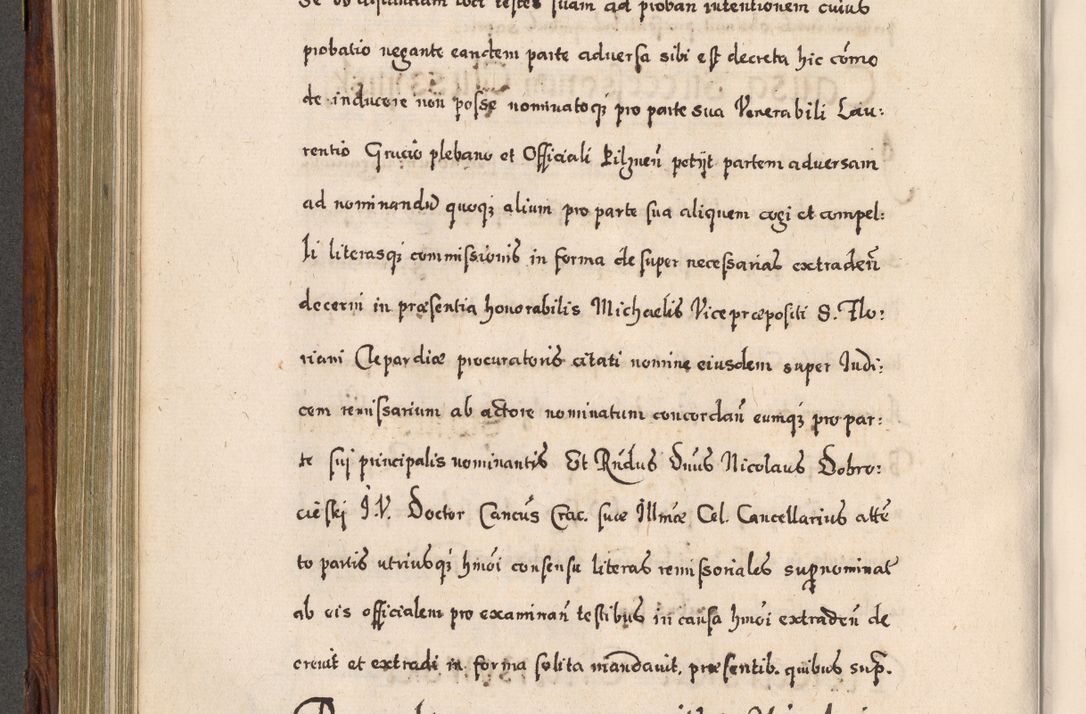 se ob distantiam loci testes suam ad proban intentionem cuius
probatio negante eandem parte adversa sibi est decreta hic cómo
de inducere non posse nominatoqꝫ pro parte sua Venerabili Lau:
rentio Grucio plebano et Officiali Pilznen̄ petijt partem adversam
ad nominandū quoqꝫ alium pro parte sua aliquem cogi et compel:
li literasqꝫ commissionis in forma de super necessarias extraden̄
decerni in præsentia honorabilis Michaelis Vicepræpositi S. Flo:
riani Clepardiæ procuratoris citati nomine eiusdem super Iudi:
cem remissarium ab actore nominatum concordan̄ eumqꝫ pro par:
te sui principalis nominantis Et Rńdus Dńus Nicolaus Dobro:
cieski I.V. Doctor Cancús Crac. suæ Illmæ Cel. Cancellarius atte
to partis utriusqꝫ hmói consensu literas remissoriales supranominat
ab eis officialem pro examinan̄ testibus in causa hmói extraden̄ de
crevit et extradi in forma solita mandavit, præsentib. quibus sup.